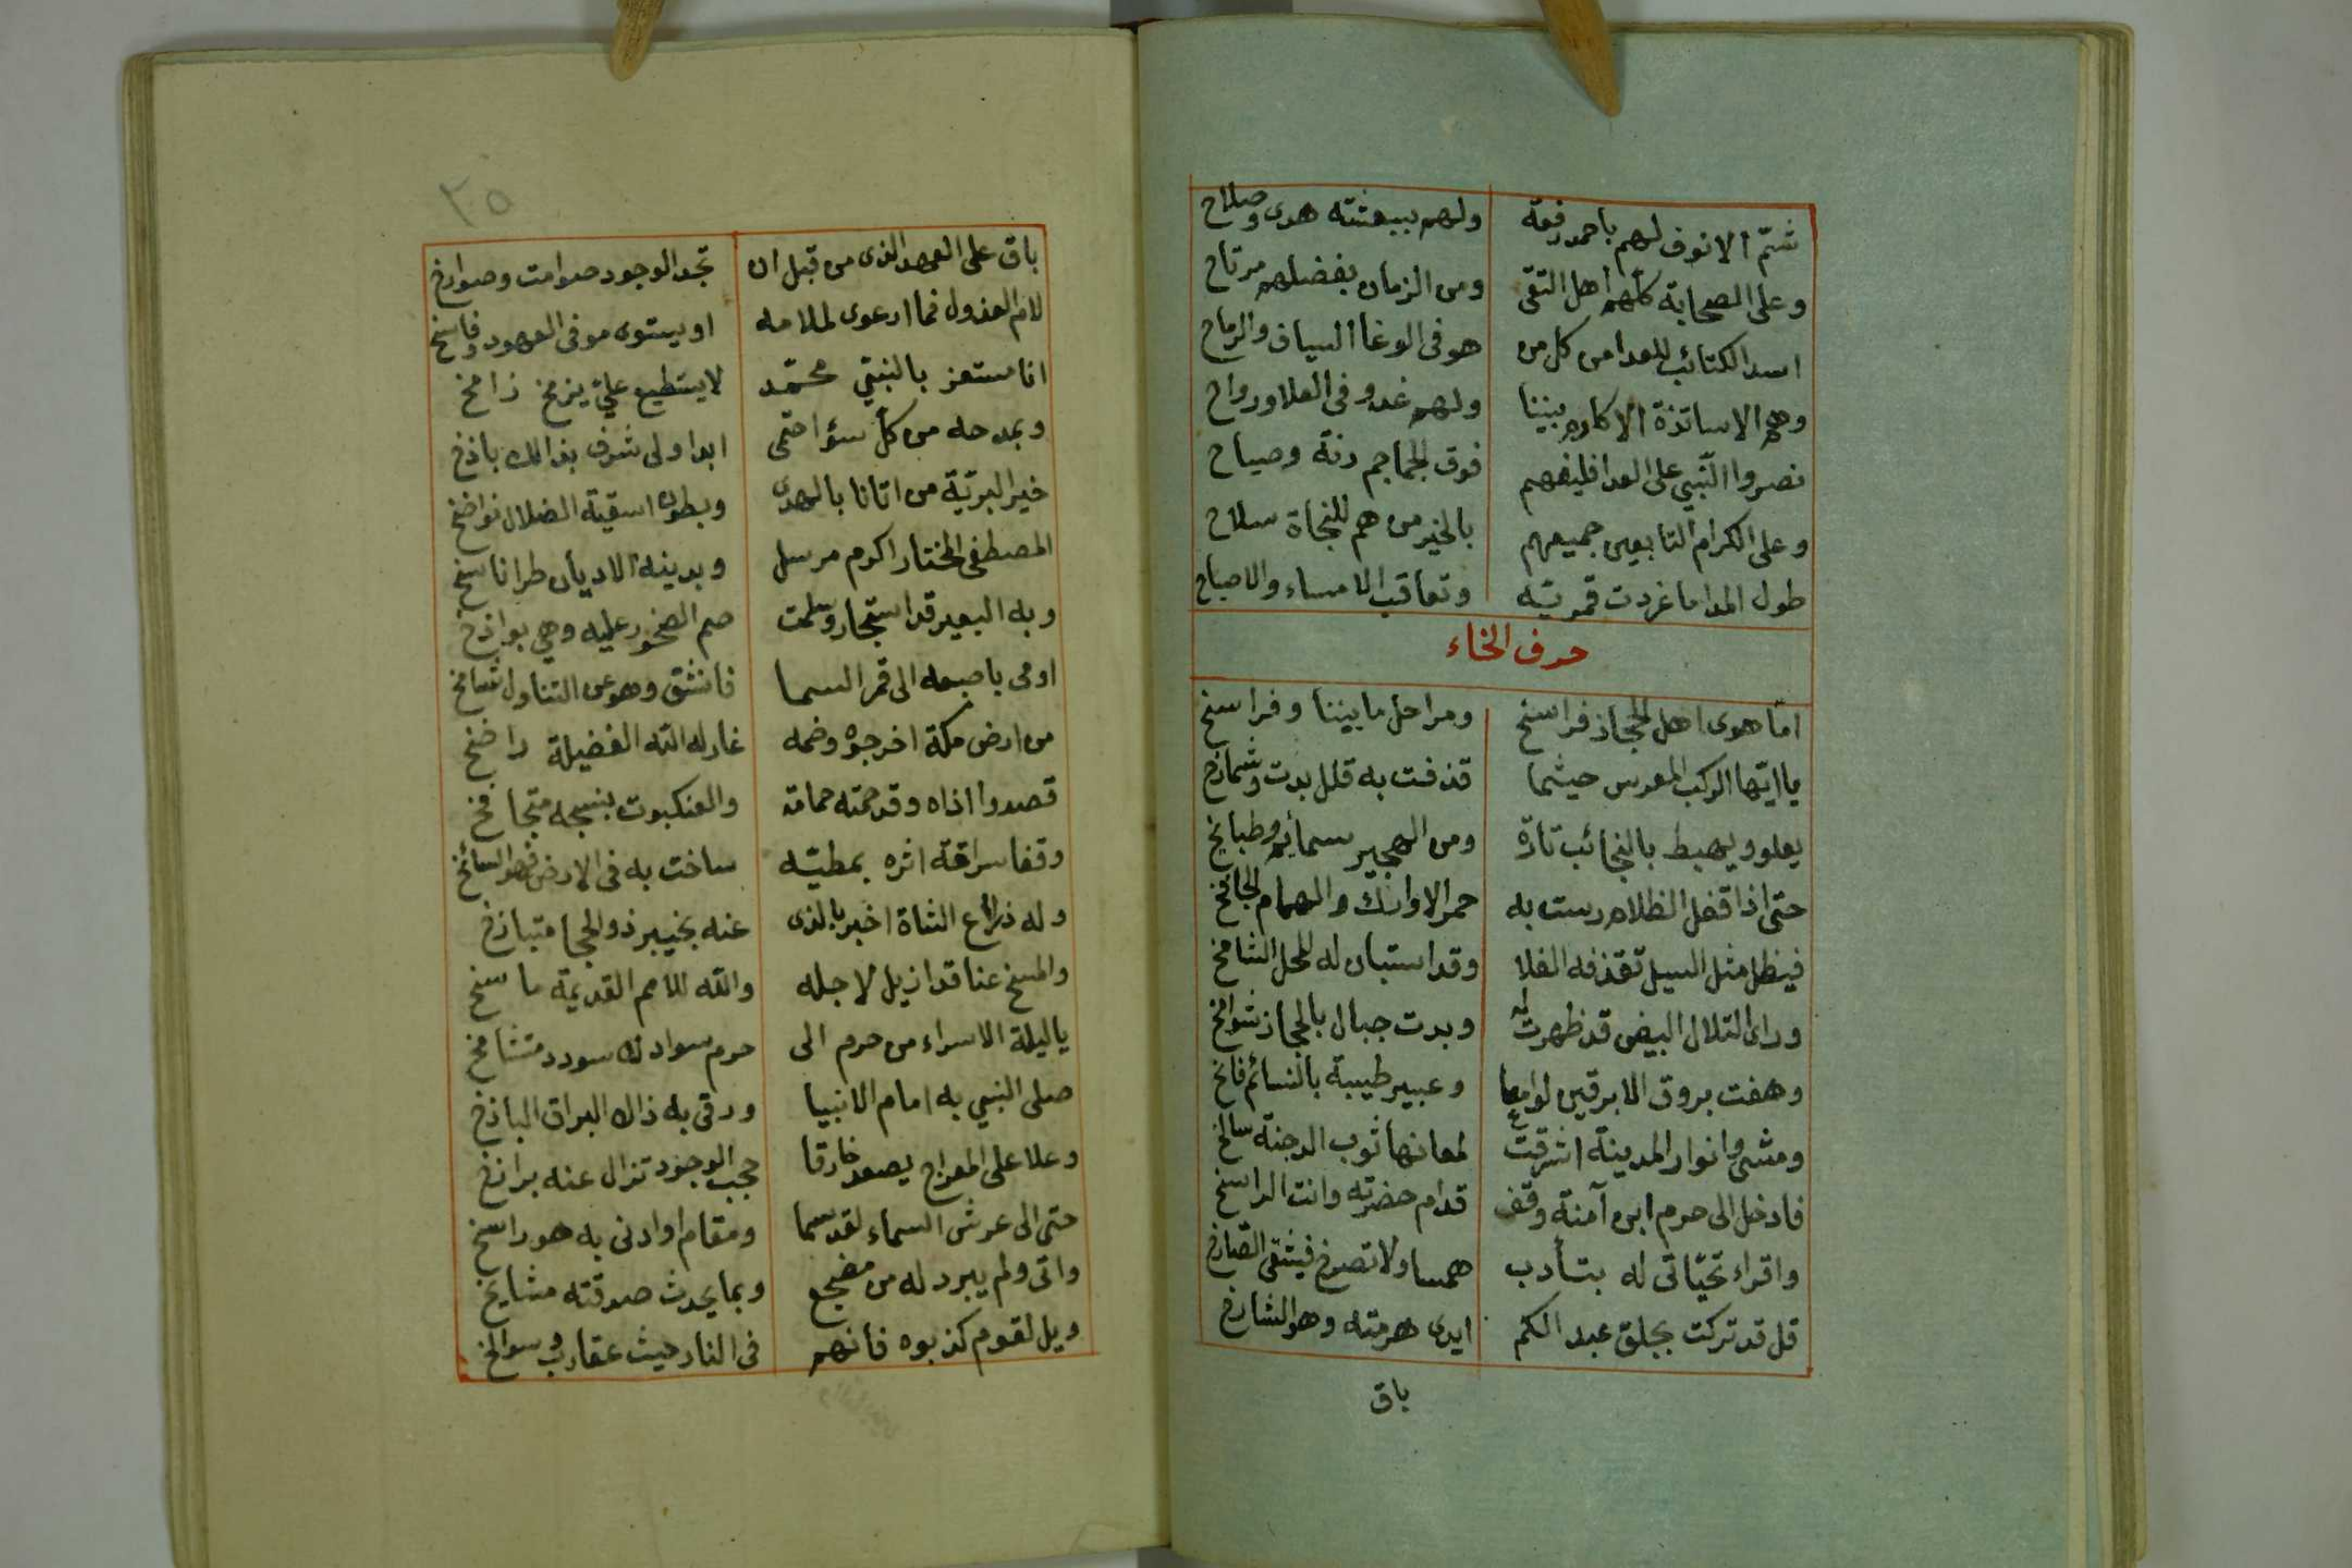 شم الانوف لهم باحمد رفعة ولهم ببعثته هدى وصلاح
وعلى الصحابة كلهم أهل التقى ومن الزمان بفضلهم مرتاح
اسد الكتائب للعدا من كل من هو فى الوغا السياف والرماح
وهم الاساتذة الاكارم بيننا ولهم غدو فى العلا ورواح
نصروا النبي على العدا فليفهم فوق الجماجم رنة وصياح
وعلى الكرام التابعين جميعهم بالخير من هم للنجاة سلاح
طول المدا ما غردت قمرية وتعاقب الامساء والاصباح
حرف الخاء
اما هوى اهل الحجاز فراسخ ومراحل ما بيننا وفراسخ
يا ايها الركب المعرس حيثما قذفت به قلل بدت وشمارخ
يعلو ويهبط بالنجائب تارة ومن الهجير سمائم وطبايخ
حتى اذا قضل الظلام رست به حمر الاوارك والهمام الجافخ
فيظل مثل السيل تقذفه الفلا وقد استبان له المحل الشامخ
وراى التلال البيض قد ظهرت له وبدت جبال بالحجاز شوامخ
وهفت بروق الابرقين لوامعا وعبير طيبة بالنسائم فائخ
ومشى وانوار المدينة اشرقت لمعانها ثوب الدجنة سالخ
فادخل الى حرم ابن آمنة وقف قدام حضرته وانت الراسخ
واقراء تحياتى له بتأدب همسا ولا تصرخ فيشقى الصارخ
قل قد تركت بجلق عبد الكم ايدى هرمته وهو الشارخ
باق
٢٥
باق على العهد الذى من قبل ان تجد الوجود صوامت وصوارخ
لام العذول فما ارعوى لملامه او يستوى موفى العهود وفاسخ
انا مستعز بالنبي محمد لا يستطيع علي يزمخ زامخ
وبمدحه من كل سؤ احتمى ابدا ولى شرف بذالك باذخ
خير البرية من اتانا بالهدى وبطون اسقية الضلال نواضخ
المصطفى المختار اكرم مرسل وبدينه الاديان طرا ناسخ
وبه البعير قد استجار وسلمت صم الصخور عليه وهي بواذخ
اومى باصبعه الى قمر السما فانشق وهو عن التناول شامخ
من ارض مكة اخرجوه وضمه غار له الله الفضيلة راضخ
قصدوا اذاه وقد حمته حمامة والعنكبوت بنسجه متجافخ
وقفا سراقة اثره بمطية ساخت به فى الارض فهو السائخ
وله ذراع الشاة اخبر بالذى عنه بخيبر ذو الحجا متبازخ
والمسخ عنا قد ازيل لاجله والله للامم القديمة ماسخ
يا ليلة الاسراء من حرم الى حرم سوادك سودد متشامخ
صلى النبي به امام الانبيا ورقى به ذاك البراق الباذخ
وعلا على المعراج يصعد خارقا حجب الوجود تزال عنه برازخ
حتى الى عرش السماء لقد سما ومقام او ادنى به هو راسخ
واتى ولم يبرد له من مضجع وبما يحدث صدقته مشايخ
ويل لقوم كذبوه فانهم فى النار حيث عقارب وسوالخ